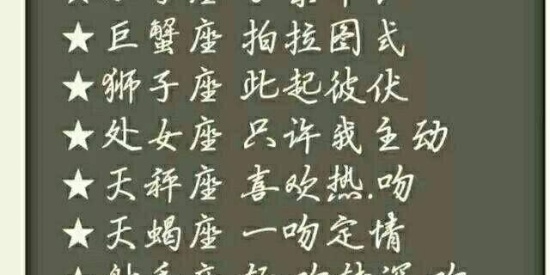 ★巨蟹座 拍拉图式
★狮子座 此起彼伏
★处女座 只许我主动
★天秤座 喜欢热.吻
★天蝎座 一吻定情